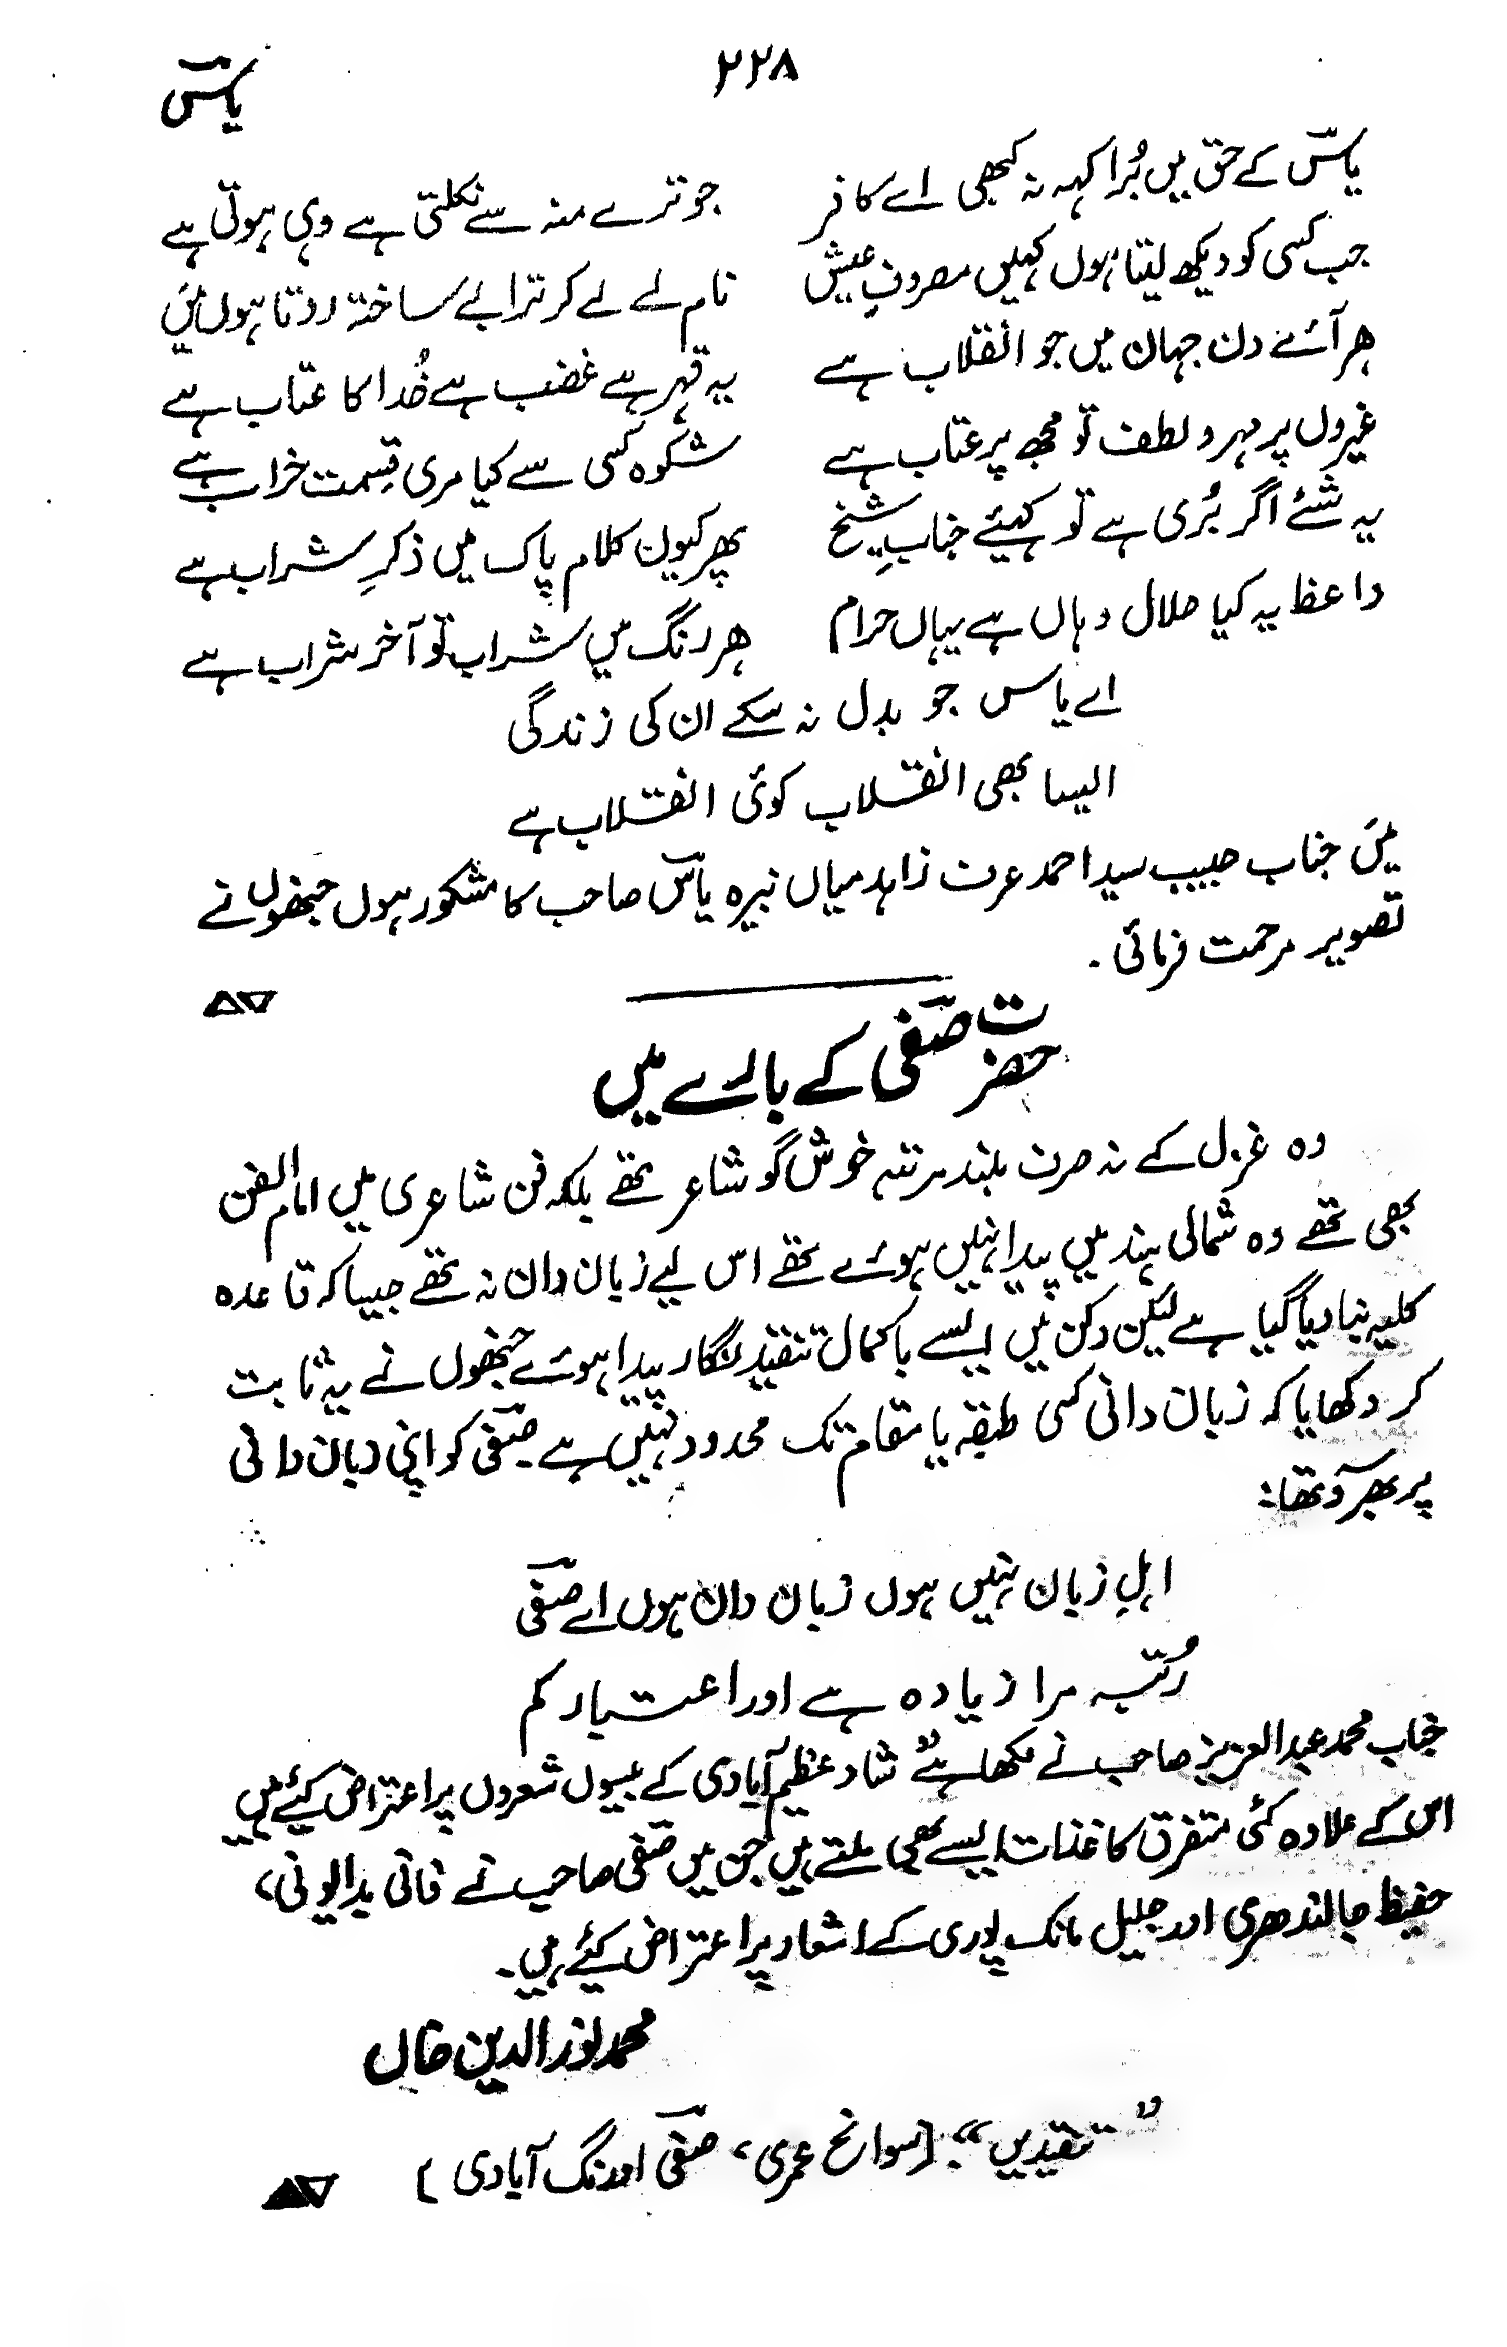 ۲۲۸
یاسؔ
یاسؔ کے حق میں بُرا کہہ نہ کبھی اے کافر جو ترے منہ سے نکلتی ہے وہی ہوتی ہے
جب کسی کو دیکھ لیتا ہوں کہیں مصروفِ عیش نام لے لے کر ترا بے ساختہ روتا ہوں میَں
ہر آئے دن جہان میں جو انقلاب ہے یہ قہر ہے غضب ہے خُدا کا عتاب ہے
غیروں پر مہر و لطف تو مجھ پر عتاب ہے شکوہ کسی سے کیا مری قسمت خراب ہے
یہ شئے اگر بُری ہے تو کہیئے جنابِ شیخ پھر کیوں کلام پاک میں ذکرِ شراب ہے
واعظ یہ کیا حلال وہاں ہے یہاں حرام ہر رنگ میں شراب تو آخر شراب ہے
اے یاس جو بدل نہ سکے ان کی زندگی
ایسا بھی انقلاب کوئی انقلاب ہے
میَں جناب حبیب سید احمد عرف زاہد میاں نبیرہ یاسؔ صاحب کا مشکور ہوں جنھوں نے
تصویر مرحمت فرمائی ۔
حضرت صفیؔ کے بارے میں
وہ غزل کے نہ صرف بلند مرتبہ خوش گو شاعر تھے بلکہ فن شاعری میں امام الفن
بھی تھے وہ شمالی ہند میں پیدا نہیں ہوئے تھے اس لیے زبان دان نہ تھے جیسا کہ قاعدہ
کلیہ بنا دیا گیا ہے لیکن دکن میں ایسے باکمال تنقید نگار پیدا ہوئے جنھوں نے یہ ثابت
کر دکھایا کہ زبان دانی کسی طبقہ یا مقام تک محدود نہیں ہے ۔ صفیؔ کو اپنی زبان دانی
پر بھروسہ تھا :
اہلِ زبان نہیں ہوں زبان دان ہوں اے صفیؔ
رُتبہ مرا زیادہ ہے اور اعتبار کم
جناب محمد عبدالعزیز صاحب نے لکھا ہے " شاد عظیم آبادی کے بیسوں شعروں پر اعتراض کیئے ہیں
اس کے علاوہ کئی متفرق کاغذات ایسے بھی ملتے ہیں جن میں صفیؔ صاحب نے فانی بدایونی،
حفیظ جالندھری اور جلیل مانک پوری کے اشعار پر اعتراض کیئے ہیں۔
محمد نور الدین خاں
"تنقیدیں"۔ [سوانح عمری، صفیؔ اورنگ آبادی ]